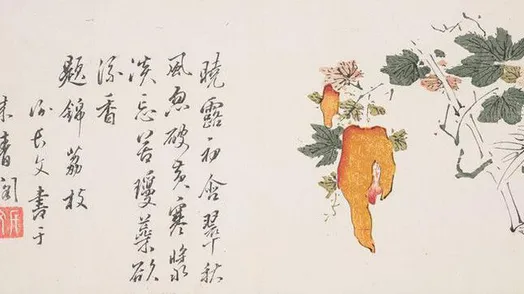 曉露初含翠秋
風忽破黃寒漿
淡忘苦瓊蘂欲
流香
題錦荔枝
長文書于
來青閣